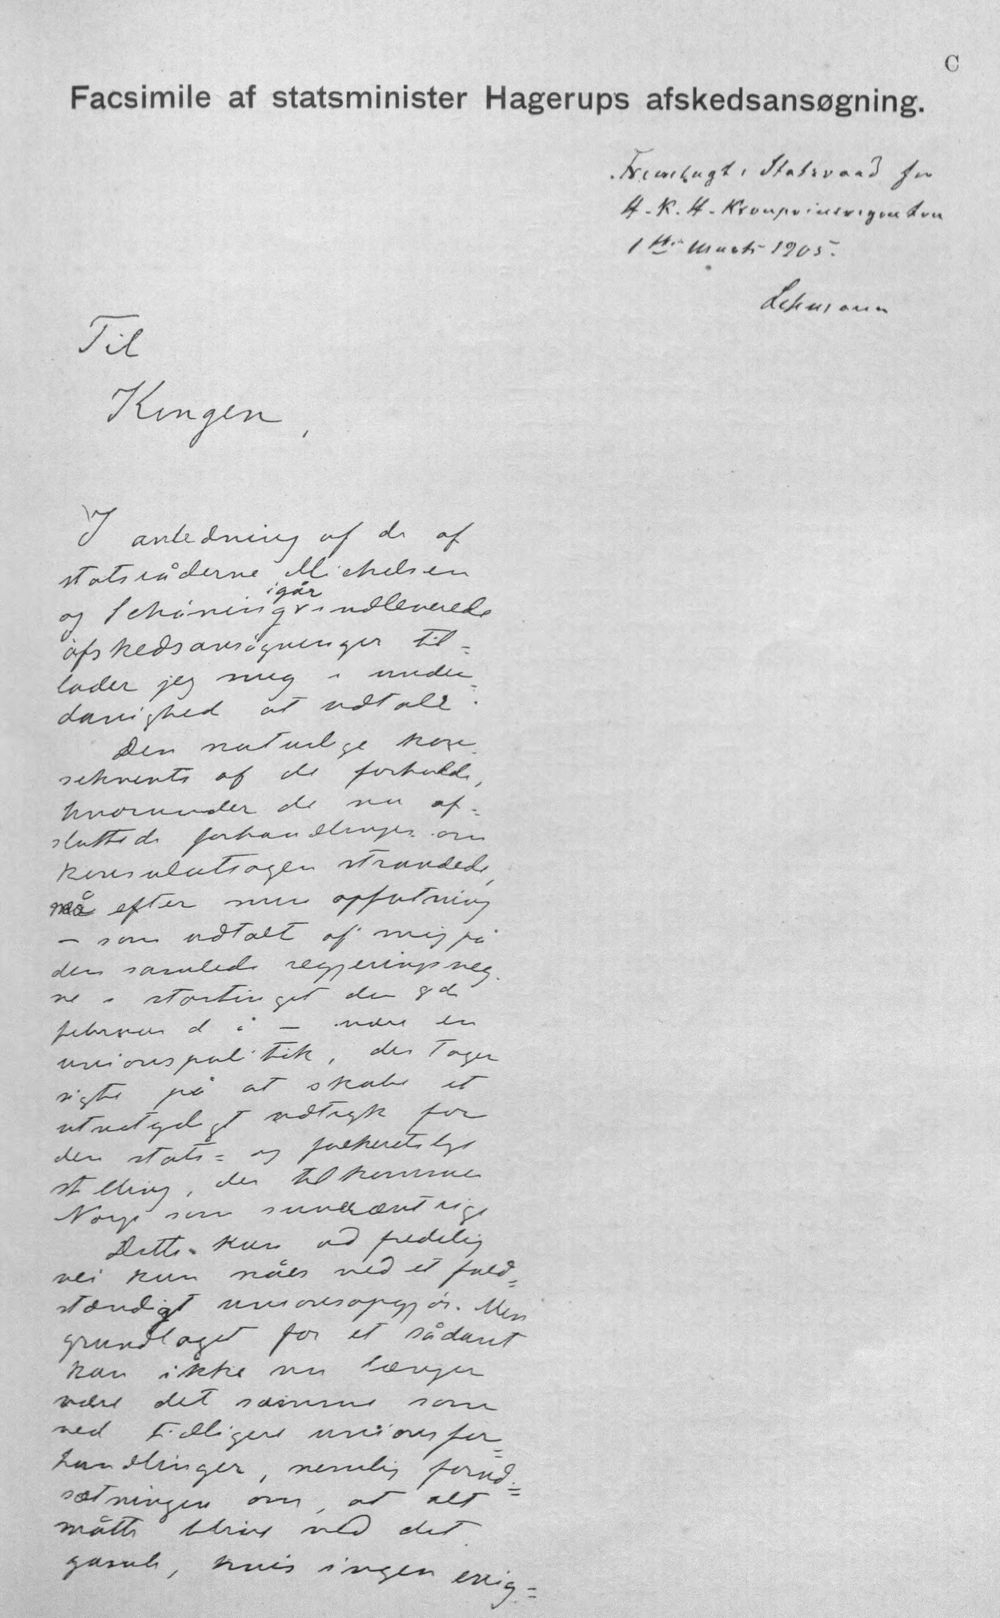 C
Facsimile af statsminister Hagerups afskedsansøgning.
Fremlagt i Statsraad for
H. K. H. Kronprinsregenten
1ste Marts 1905.
Lehmann
Til
Kongen,
I anledning af de af
statsråderne Michelsen
og Schöning igår indleverede
afskedsansøgninger til=
lader jeg mig i under=
danighed at udtale:
Den naturlige kon=
sekvents af de forholde,
hvorunder de nu af=
sluttede forhandlinger om
konsulatsagen strandede,
må efter min opfatning
– som udtalt af mig på
den samlede regjerings veg=
ne i stortinget den 8de
februar d å – være en
unionspolitik, der tager
sigte på at skabe et
utvetydigt udtryk for
den stats= og folkeretslige
stilling, der tilkommer
Norge som suverænt rige
Dette kan ad fredelig
vei kun nåes ved et fuld=
stændigt unionsopgjör. Men
grundlaget for et sådant
kan ikke nu længer
være det samme som
ved tidligere unionsfor=
handlinger, nemlig forud=
sætningen om, at alt
måtte blive ved det
gamle, hvis ingen enig=